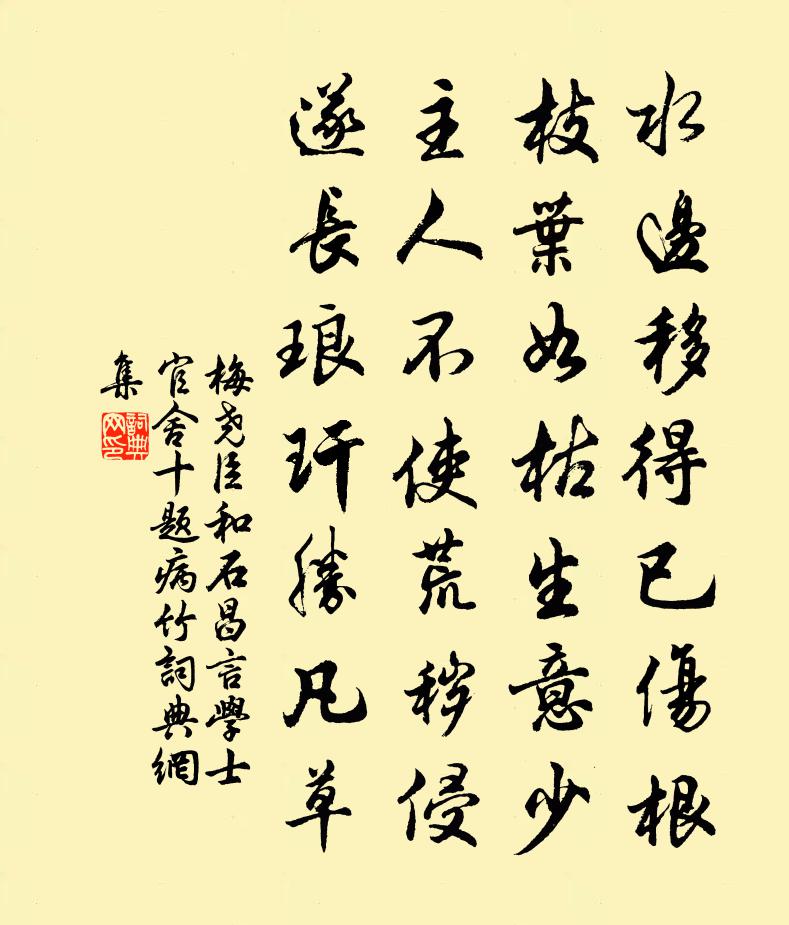 水邊移得已傷根
枝葉如枯生意少
主人不使荒穢侵
遂長琅玕勝凡草
梅堯臣和石昌言學士
官舍十題病竹詞典網
集
詞典網印